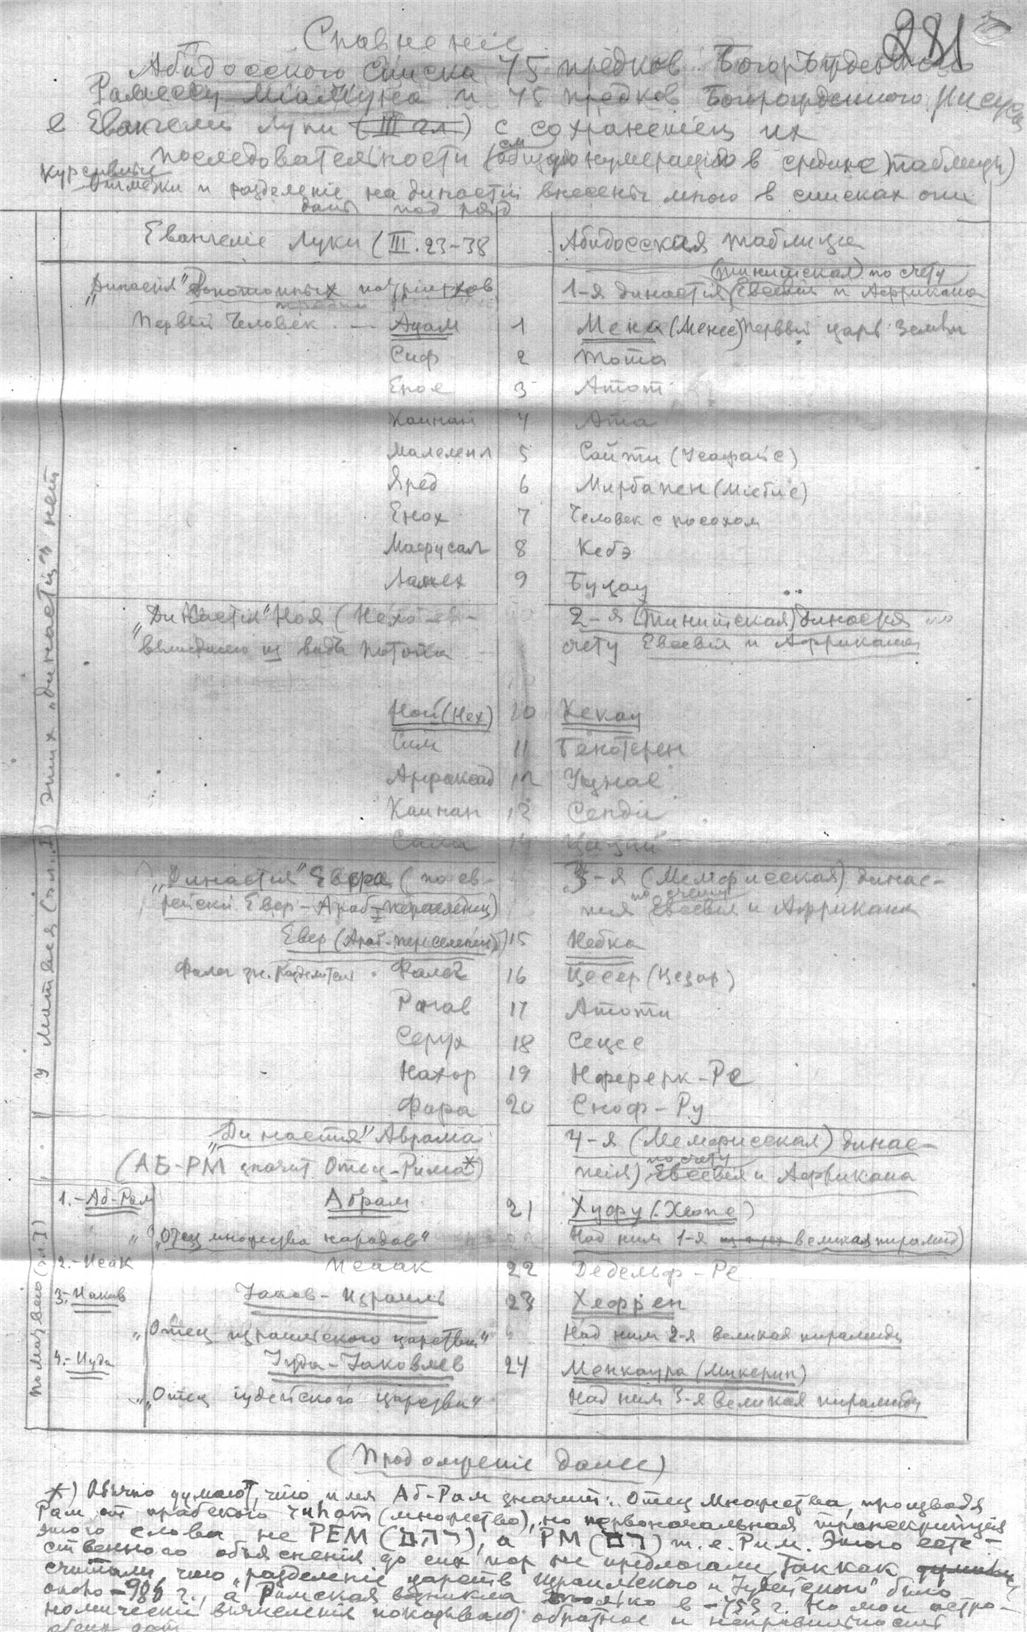 281
Сравненіе
Абидосского списка 75 предков Богорожденного
Рамессу Міамуна и 75 предков Богорожденного Іисуса
в Евангеліи Луки (III гл) с сохраненіем их
последовательности (см общую нумерацію в средине таблицы)
Курсивныя отметки и разделеніе на династіи внесены мною в списках они
даны под ряд
Евангеліе Луки (III. 23-38
Абидосская таблица
„Династія" допотопных патріархов
1-я династія (тинитская) по счету Евсевія и Африкана
Первый человек — Адам 1 Мена (Менес) первый царь земли
Сиф 2 Тота
Енос 3 Атот
Каинан 4 Ата
Малелеил 5 Сапти (Усафаіс)
Яред 6 Мирбапен (Міебис)
Енох 7 Человек с посохом
Мафусал 8 Кебэ
Ламех 9 Бузау
„Династія" Ноя (
вышедшаго из воды потопа
2-я (тинитская) династія по
счету Евсевія и Африкана
Ной (Нех) 10 Кекау
Сим 11 Бенотерен
Арфаксад 12 Уцнас
Каинан 13 Сенди
Сала 14
„Династія" Евера (по ев-
рейски Евер - Араб-переселенец)
3-я (Мемфисская) динас-
тия по счету Евсевія и Африкана
Евер (Араб-переселенец) 15 Небка
Фалег 16 Цесер (Цезар)
Рагав 17 Атоти
Серух 18 Сецес
Нахор 19 Нферерк-Ре
Фара 20 Сноф-Ру
„Династія" Аврама
(АБ-РМ значит Отец-Рима*)
4-я (Мемфисская) динас-
тія) по счету Евсевія и Африкана
1.- Аб-Рам Абрам 21 Хуфу (Хеопс)
„Отец множества народов"
Над ним 1-я великая пирамида)
2.- Исак Исаак 22 Дедельф-Ре
3.- Иаков Іаков-Израиль 23 Хефрен
„Отец израильского царства"
Над ним 2-я великая пирамида
4.- Иуда Іуда-Іаковлев 24 Менкаура (Микерин)
„Отец іудейского царства"
Над ним 3-я великая пирамида
У Матвея (гл. I) этих „династій" нет
По Матвею (гл I)
(Продолженіе далее)
*) Обычно думают, что имя Аб-Рам значит: Отец Множества, производя
Рам от арабского (множество), но первоначальная транскрипція
этого слова не РЕМ (רהם), а РМ (רם) т.е. Рим. Этого есте-
ственного объясненія до сих пор не предлагали так как
считали, что „разделеніе царств Израильского и Іудейского" было
около -98 г., а Римская возникла только в -753 г. Но мои астро-
номическия вычисленія показывают обратное и неправильность